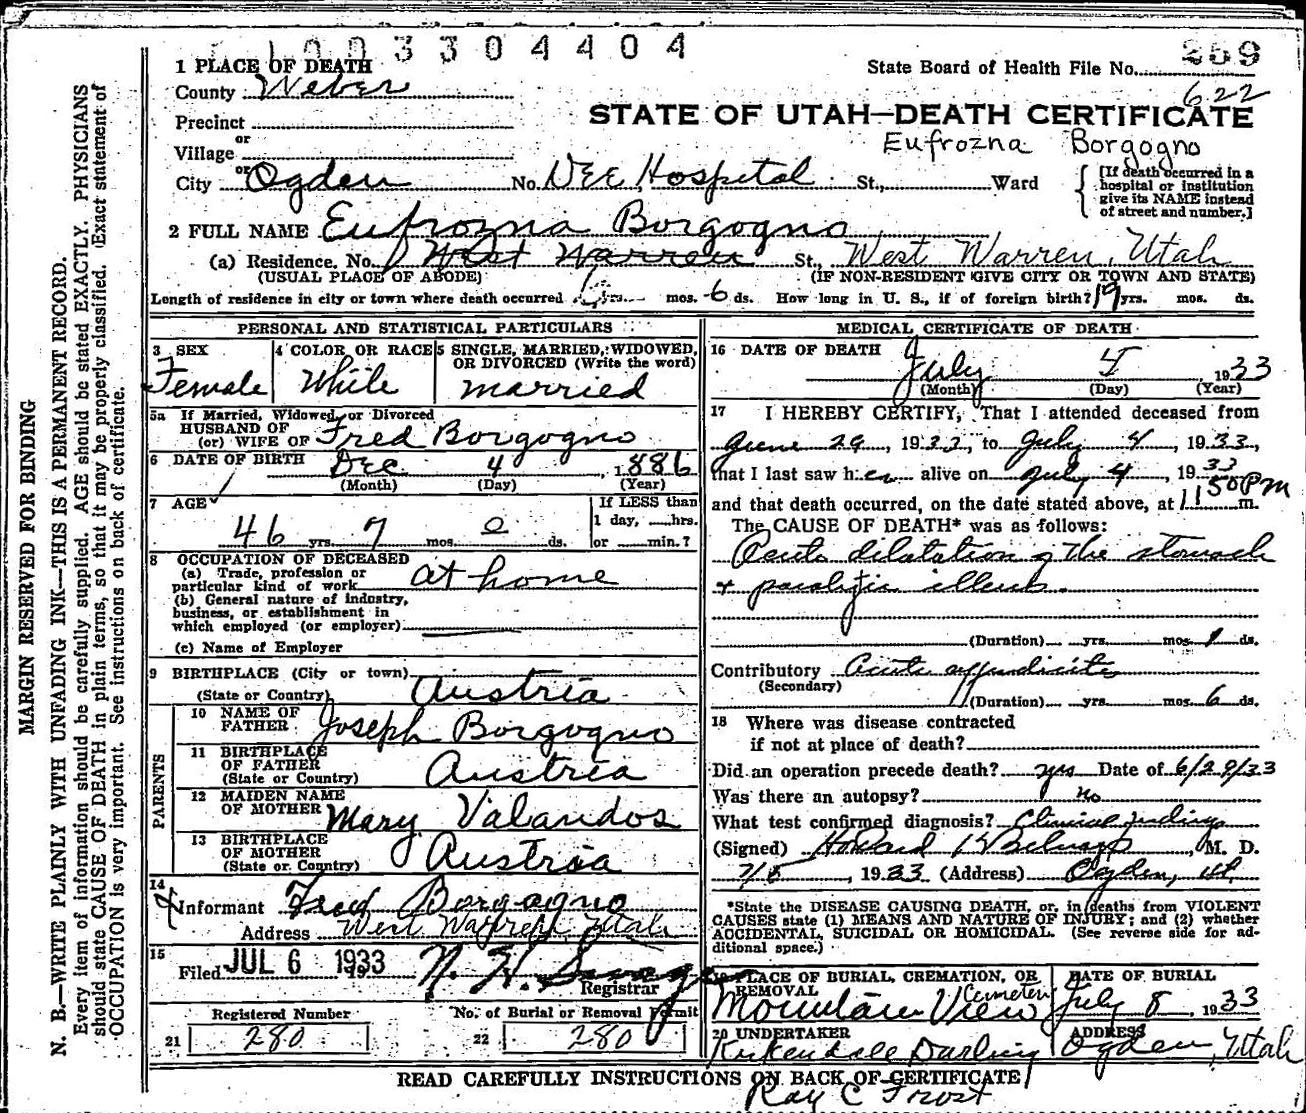 1003304404
259
State Board of Health File No.
622
1 PLACE OF DEATH
County Weber
STATE OF UTAH—DEATH CERTIFICATE
Precinct
or
Village
Eufrozna Borgogno
or
City Ogden No. Dee Hospital St., Ward
[If death occurred in a
hospital or institution
give its NAME instead
of street and number.]
2 FULL NAME Eufrozna Borgogno
(a) Residence. No. West Warren St., West Warren, Utah
(USUAL PLACE OF ABODE) (IF NON-RESIDENT GIVE CITY OR TOWN AND STATE)
Length of residence in city or town where death occurred yrs. mos. 6 ds. How long in U. S., if of foreign birth? 19 yrs. mos. ds.
PERSONAL AND STATISTICAL PARTICULARS
3 SEX
Female
4 COLOR OR RACE
White
5 SINGLE, MARRIED, WIDOWED,
OR DIVORCED (Write the word)
married
5a If Married, Widowed, or Divorced
HUSBAND OF
(or) WIFE OF Fred Borgogno
6 DATE OF BIRTH Dec 4, 1886
(Month) (Day) (Year)
7 AGE
46 yrs. 7 mos. 0 ds.
If LESS than
1 day, hrs.
or min.?
8 OCCUPATION OF DECEASED
(a) Trade, profession or
particular kind of work at home
(b) General nature of industry,
business, or establishment in
which employed (or employer)
(c) Name of Employer
9 BIRTHPLACE (City or town)
(State or Country) Austria
PARENTS
10 NAME OF
FATHER Joseph Borgogno
11 BIRTHPLACE
OF FATHER
(State or Country) Austria
12 MAIDEN NAME
OF MOTHER Mary Valandos
13 BIRTHPLACE
OF MOTHER
(State or Country) Austria
14
Informant Fred Borgogno
Address West Warren Utah
15
Filed JUL 6 1933 N. H. Savage
Registrar
Registered Number
21 280
No. of Burial or Removal Permit
22 280
MEDICAL CERTIFICATE OF DEATH
16 DATE OF DEATH
July 4, 1933
(Month) (Day) (Year)
17 I HEREBY CERTIFY, That I attended deceased from
June 29, 1933, to July 4, 1933,
that I last saw her alive on July 4, 1933
and that death occurred, on the date stated above, at 1150 PM m.
The CAUSE OF DEATH* was as follows:
Acute dilatation of the stomach
+ paralytic illeus.
(Duration) yrs. mos. 1 ds.
Contributory Acute appendicitis
(Secondary)
(Duration) yrs. mos. 6 ds.
18 Where was disease contracted
if not at place of death?
Did an operation precede death? yes Date of 6/29/33
Was there an autopsy? no
What test confirmed diagnosis? Clinical findings
(Signed) M. D.
7/5, 1933 (Address) Ogden, Ut.
*State the DISEASE CAUSING DEATH, or, in deaths from VIOLENT
CAUSES state (1) MEANS AND NATURE OF INJURY; and (2) whether
ACCIDENTAL, SUICIDAL OR HOMICIDAL. (See reverse side for ad-
ditional space.)
19 PLACE OF BURIAL, CREMATION, OR
REMOVAL
Mountain View Cemetery
DATE OF BURIAL
July 8, 1933
20 UNDERTAKER
Kirkendall Darling
ADDRESS
Ogden, Utah
READ CAREFULLY INSTRUCTIONS ON BACK OF CERTIFICATE
Ray C Frost
MARGIN RESERVED FOR BINDING
N. B.—WRITE PLAINLY WITH UNFADING INK—THIS IS A PERMANENT RECORD.
Every item of information should be carefully supplied. AGE should be stated EXACTLY. PHYSICIANS
should state CAUSE OF DEATH in plain terms, so that it may be properly classified. Exact statement of
OCCUPATION is very important. See instructions on back of certificate.